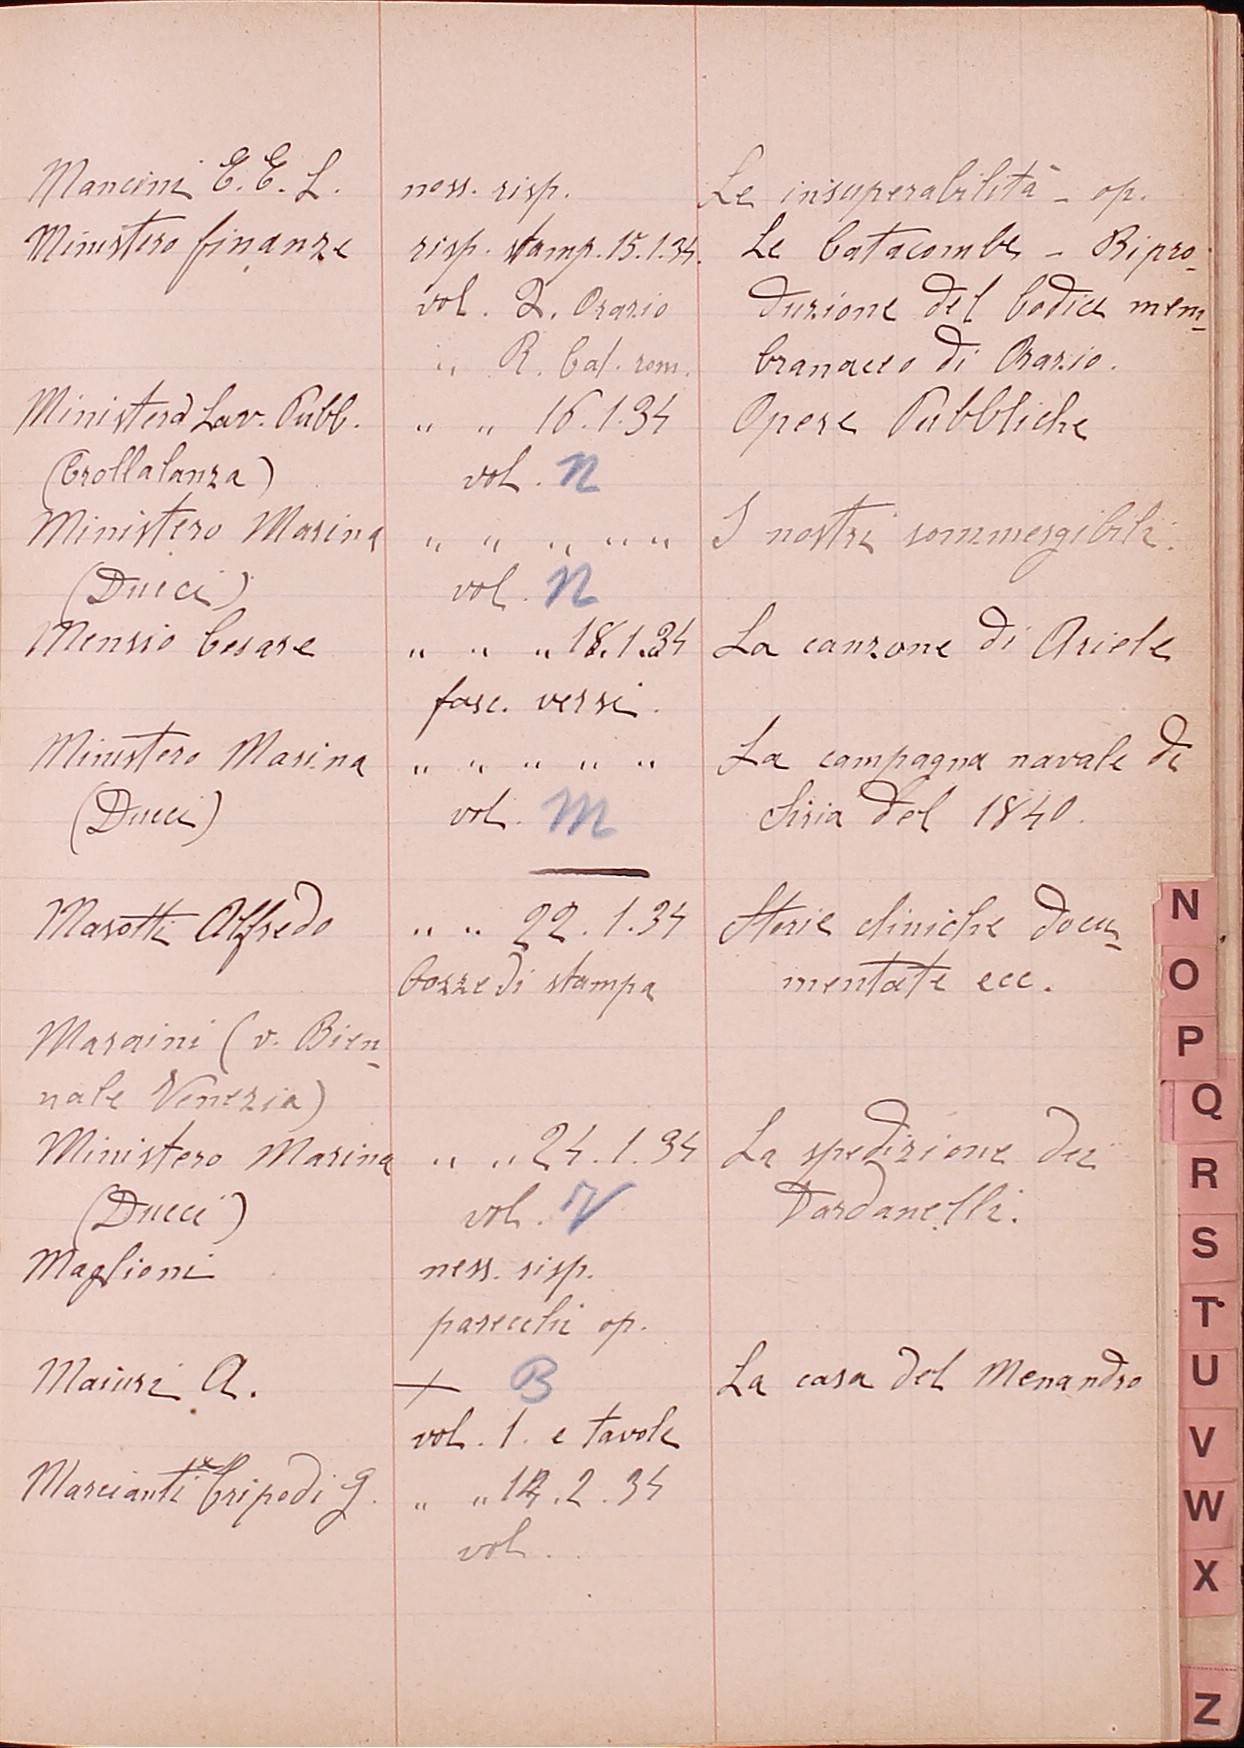 Mancini E. E. L. ness. risp. Le insuperabilità - op.
Ministero finanze risp. stamp. 15.1.34. Le Catacombe - Ripro-
vol. Q. Orazio duzione del Codice mem-
" R. Cat. rom. branaceo di Orazio.
Ministero Lav. Pubb. " " 16.1.34 Opere Pubbliche
(Crollalanza) vol. N
Ministero Marina " " " " " I nostri sommergibili.
(Ducci) vol. N
Mensio Cesare " " " 18.1.34 La canzone di Ariele
fasc. versi.
Ministero Marina " " " " " La campagna navale di
(Ducci) vol. M Siria del 1840.
Masotti Alfredo " " 22.1.34 Storie cliniche docu-
bozze di stampa mentate ecc.
Maraini (v. Bien-
nale Venezia)
Ministero Marina " " 24.1.34 La spedizione dei
(Ducci) vol. V Dardanelli.
Maglioni ness. risp.
parecchi op.
Maiuri A. + B La casa del Menandro
vol. 1. e tavole
Marcianti Tripodi G. " " .2.34
vol.
N
O
P
Q
R
S
T
U
V
W
X
Z